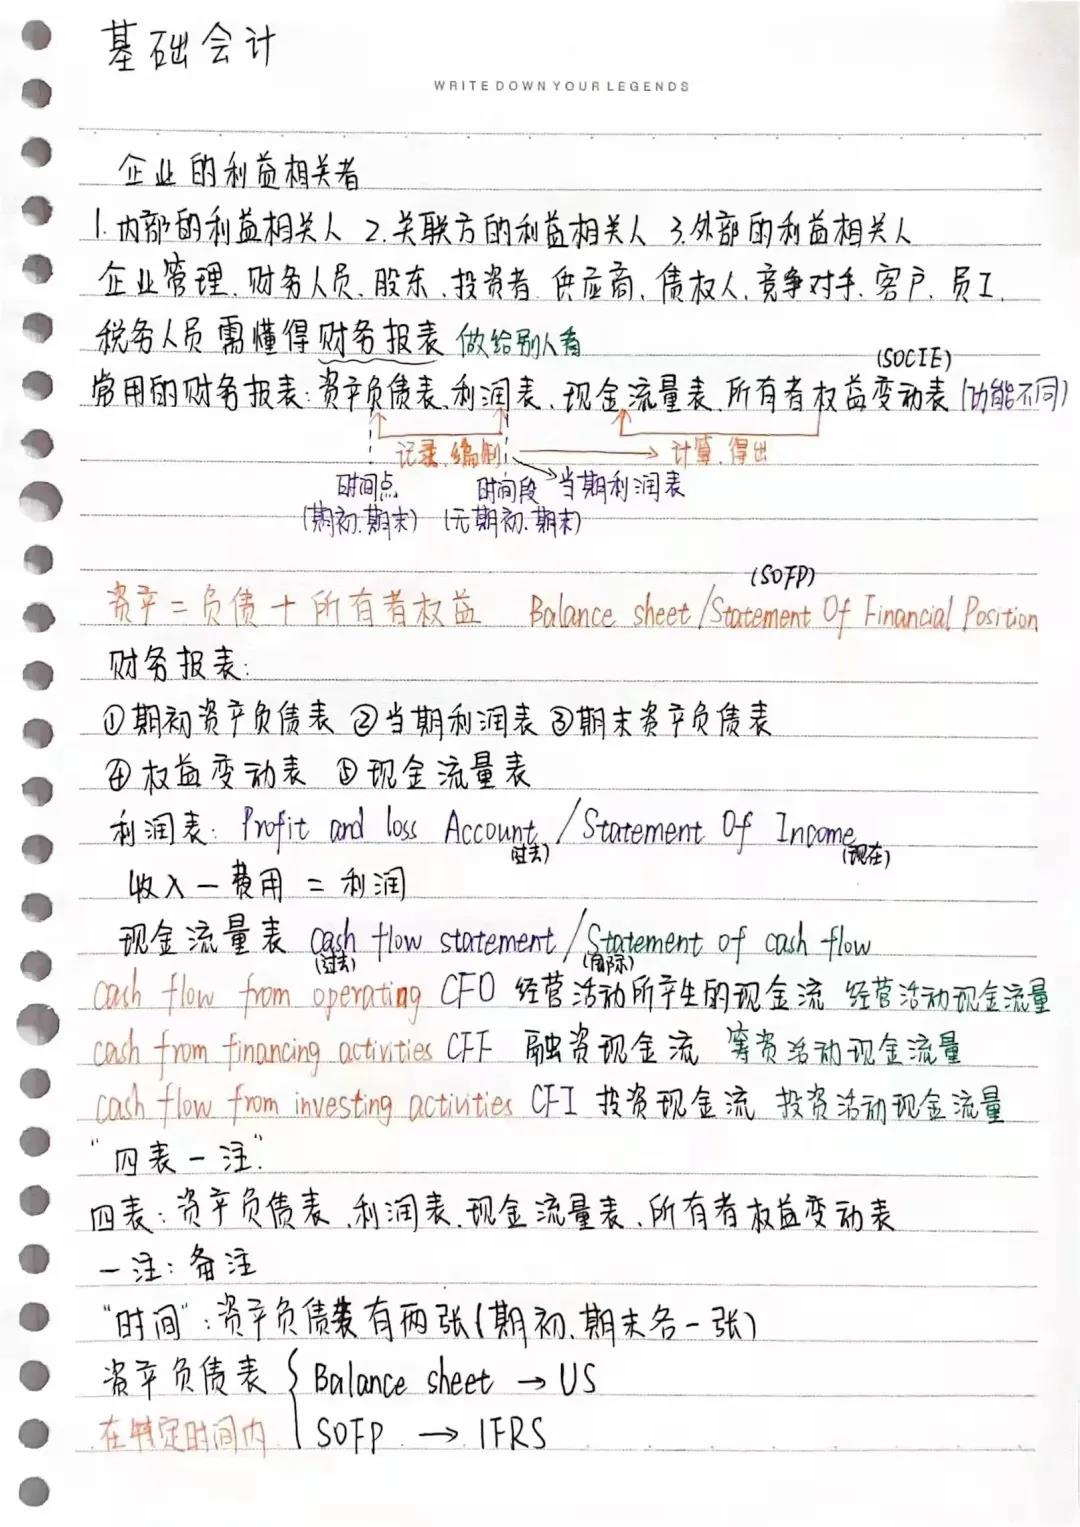 基础会计
WRITE DOWN YOUR LEGENDS
企业的利益相关者
1.内部的利益相关人 2.关联方的利益相关人 3.外部的利益相关人
企业管理、财务人员、股东、投资者、供应商、债权人、竞争对手、客户、员工、
税务人员需懂得财务报表 做给别人看
(SOCIE)
常用的财务报表:资产负债表、利润表、现金流量表、所有者权益变动表(功能不同)
记录、编制 计算、得出
时间点 时间段 当期利润表
(期初、期末) (无期初、期末)
(SOFP)
资产=负债+所有者权益 Balance sheet/Statement Of Financial Position
财务报表:
①期初资产负债表 ②当期利润表 ③期末资产负债表
④权益变动表 ⑤现金流量表
利润表: Profit and loss Account/Statement Of Income
(过去) (现在)
收入-费用=利润
现金流量表 cash flow statement/Statement of cash flow
(过去) (国际)
cash flow from operating CFO 经营活动所产生的现金流 经营活动现金流量
cash from financing activities CFF 融资现金流 筹资活动现金流量
cash flow from investing activities CFI 投资现金流 投资活动现金流量
"四表一注".
四表:资产负债表、利润表、现金流量表、所有者权益变动表
一注:备注
"时间":资产负债表有两张(期初、期末各一张)
资产负债表 { Balance sheet → US
在特定时间内 SOFP → IFRS